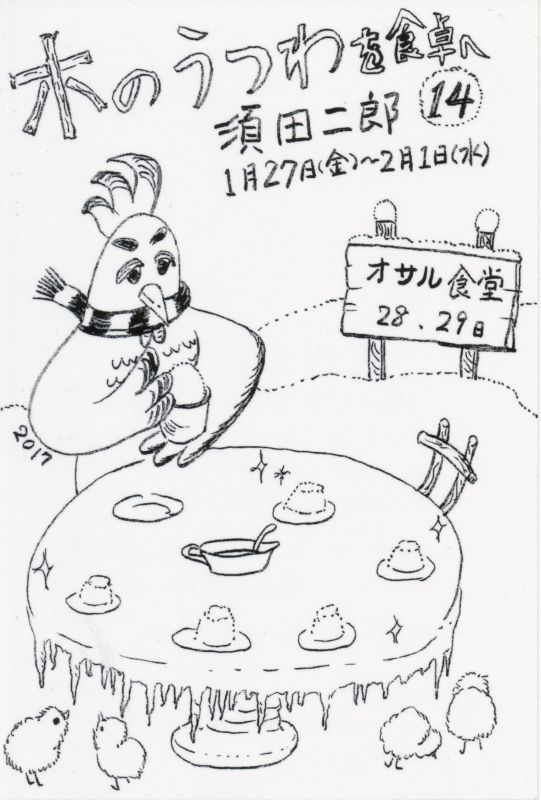 木のうつわを食卓へ
須田二郎 14
1月27日(金)~2月1日(水)
オサル食堂
28.29日
2017